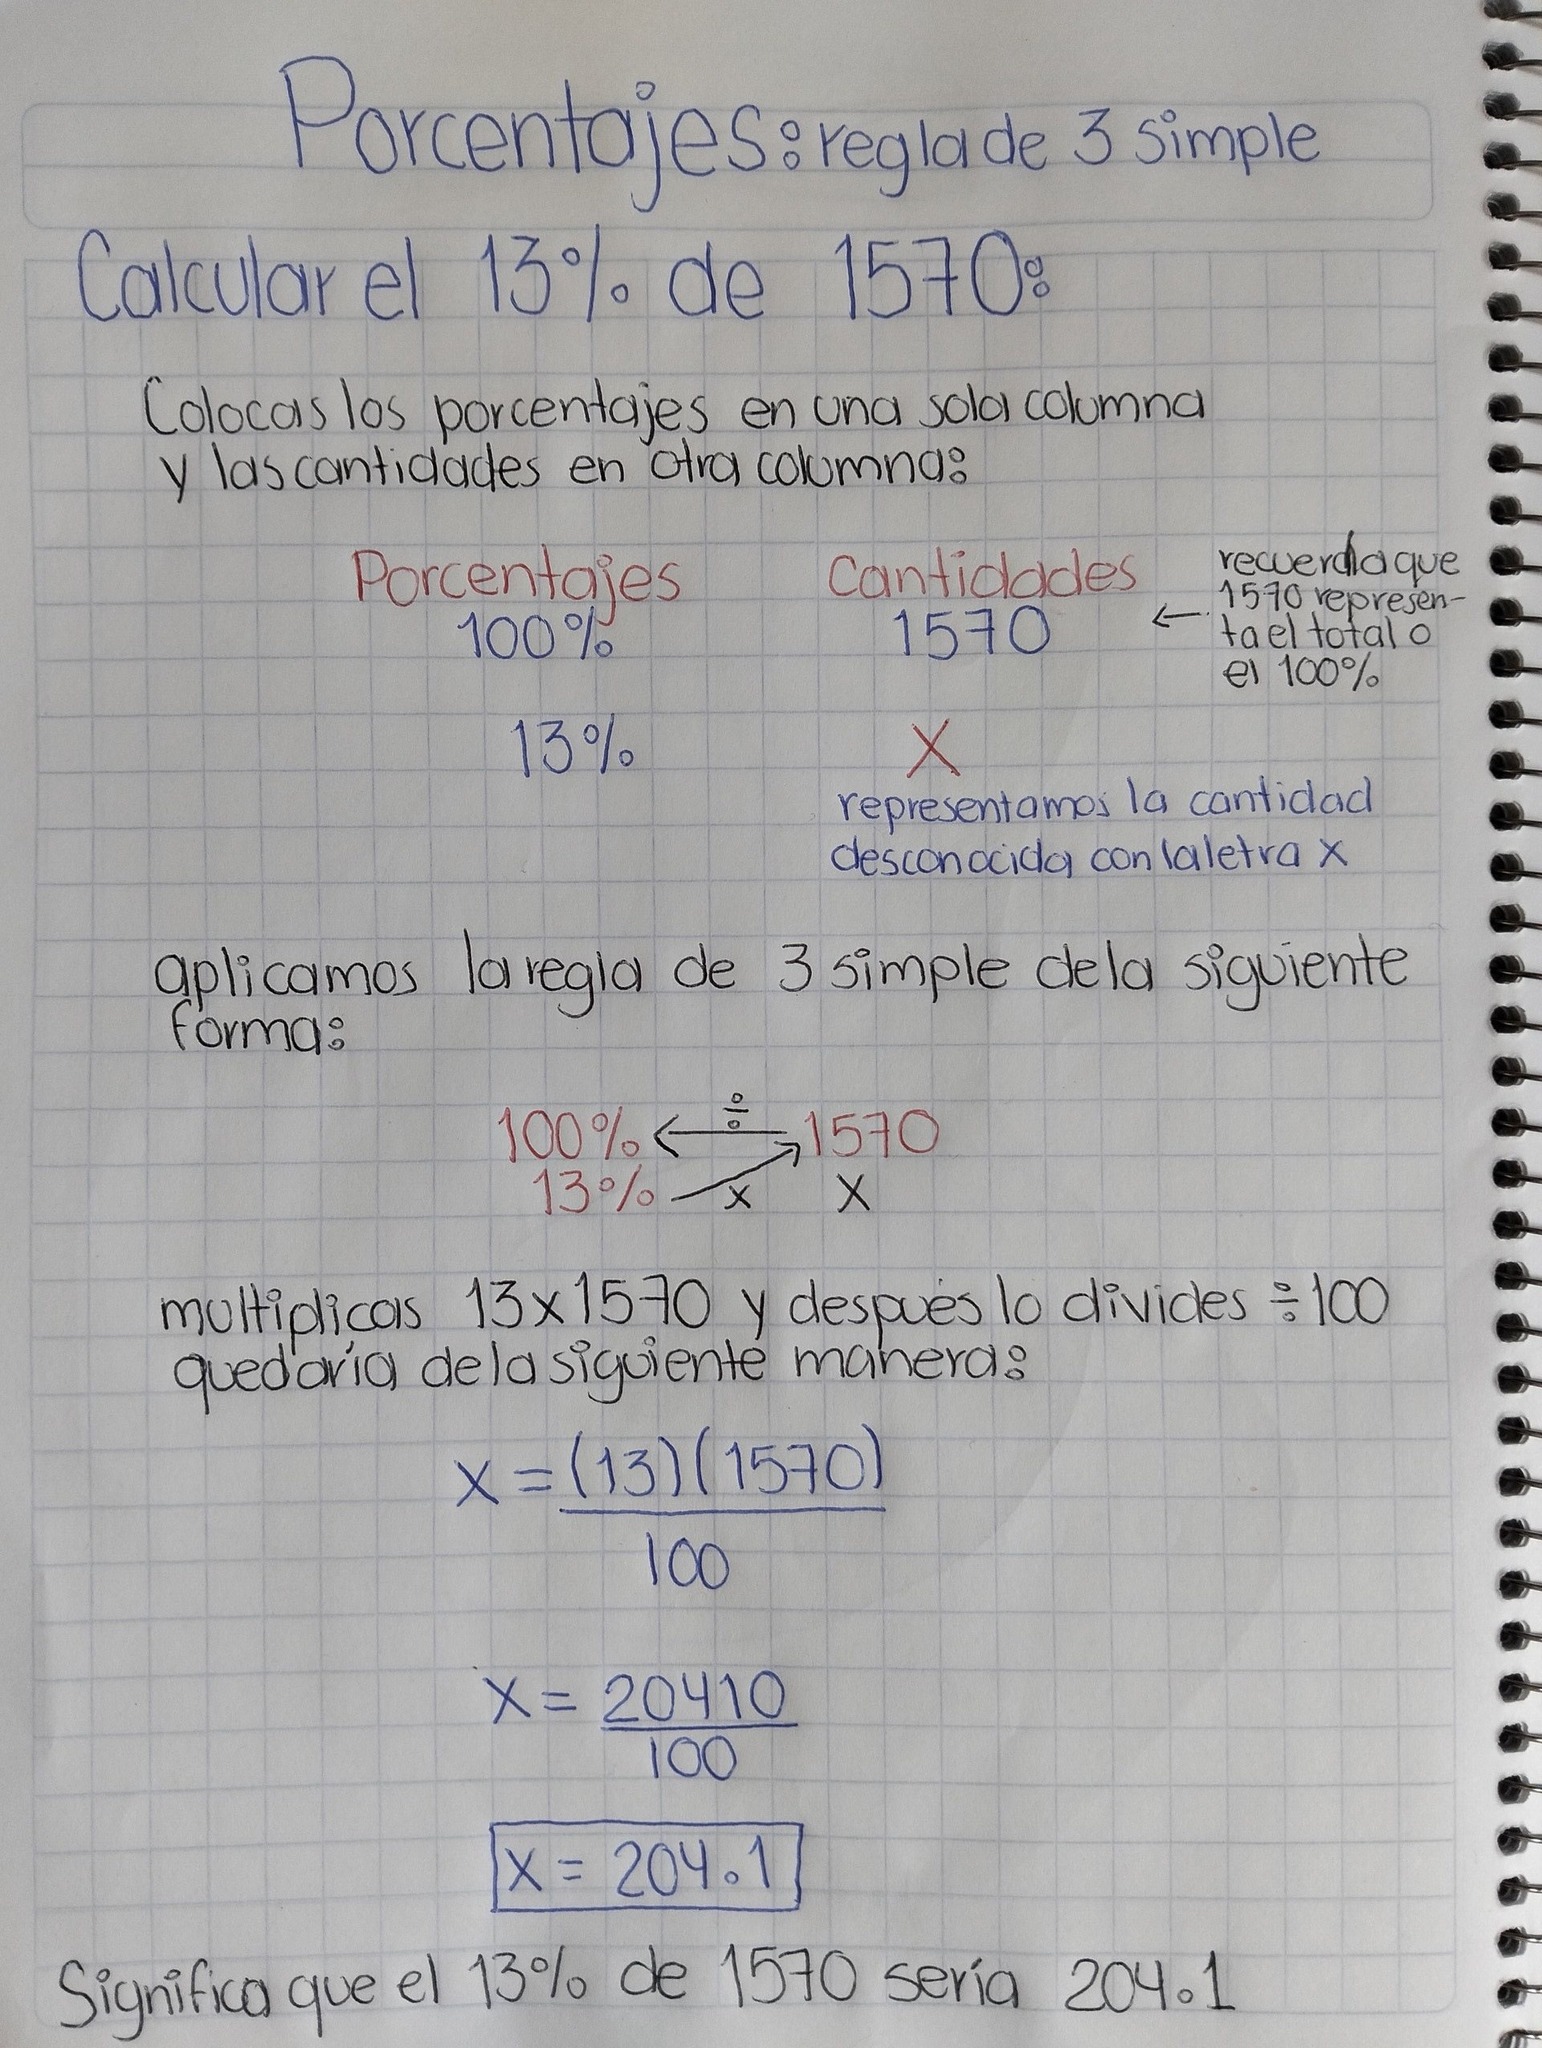 Porcentajes: regla de 3 simple
Calcular el 13% de 1570:
Colocas los porcentajes en una sola columna
y las cantidades en otra columna:
Porcentajes Cantidades
100% 1570 ← recuerda que
1570 represen-
ta el total o
el 100%
13% X
representamos la cantidad
desconocida con la letra x
aplicamos la regla de 3 simple de la siguiente
forma:
÷
100% ← 1570
13% x X
multiplicas 13x1570 y después lo divides ÷100
quedaría de la siguiente manera:
x = (13)(1570)
100
x = 20410
100
x = 204.1
Significa que el 13% de 1570 sería 204.1